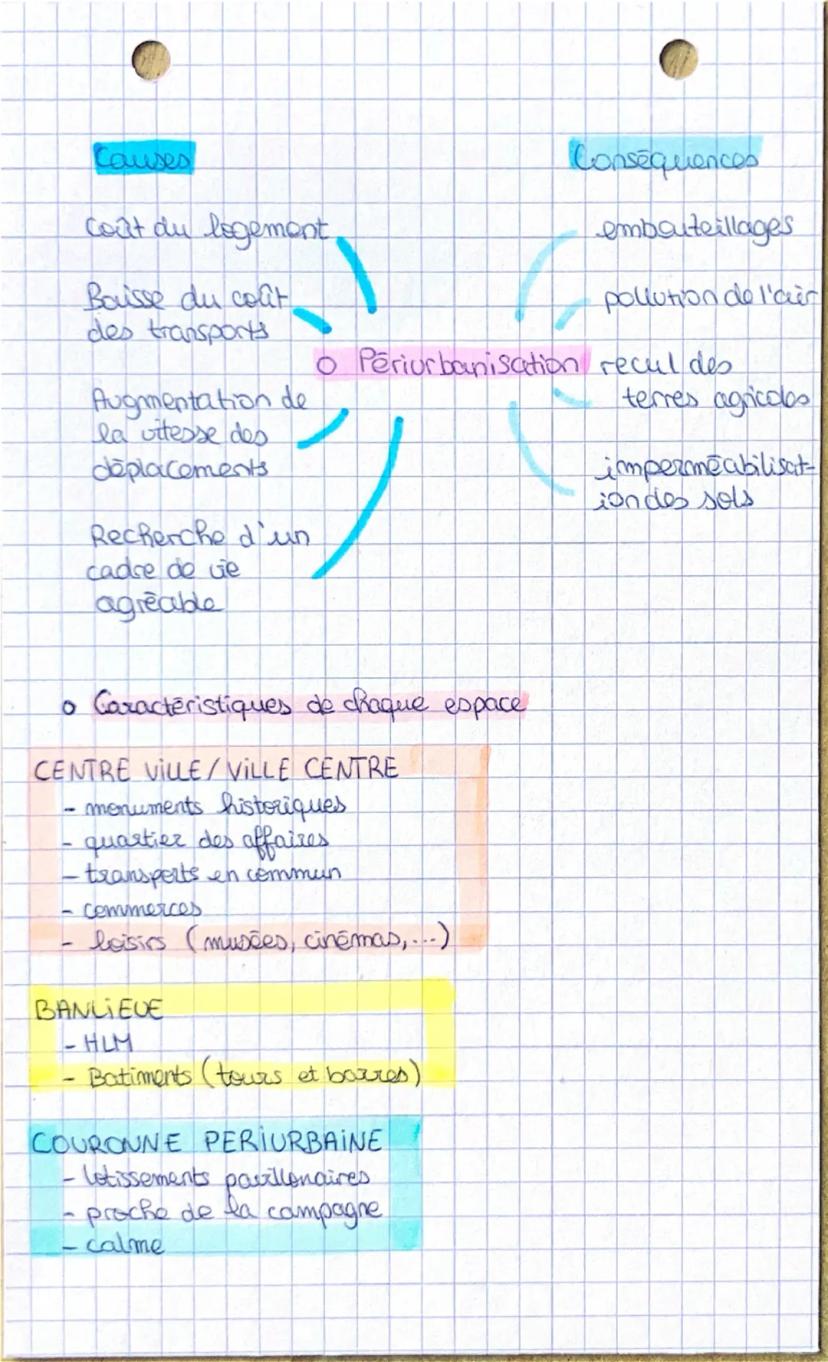 Causes
Coût du logement
Baisse du coût
des transports
Augmentation de
la vitesse des
déplacements
Recherche d'un
cadre de vie
agréable
o Périurbanisation
Conséquences
embouteillages
pollution de l'air
recul des
terres agricoles
imperméabilisat-
ion des sols
o Caractéristiques de chaque espace
CENTRE ViLLE / ViLLE CENTRE
- monuments historiques
- quartier des affaires
- transports en commun
- commerces
- loisirs (musées, cinémas,...)
BANLiEUE
- HLM
- Batiments (tours et barres)
COURONNE PERiURBAiNE
- lotissements pavillonaires
- proche de la campagne
- calme